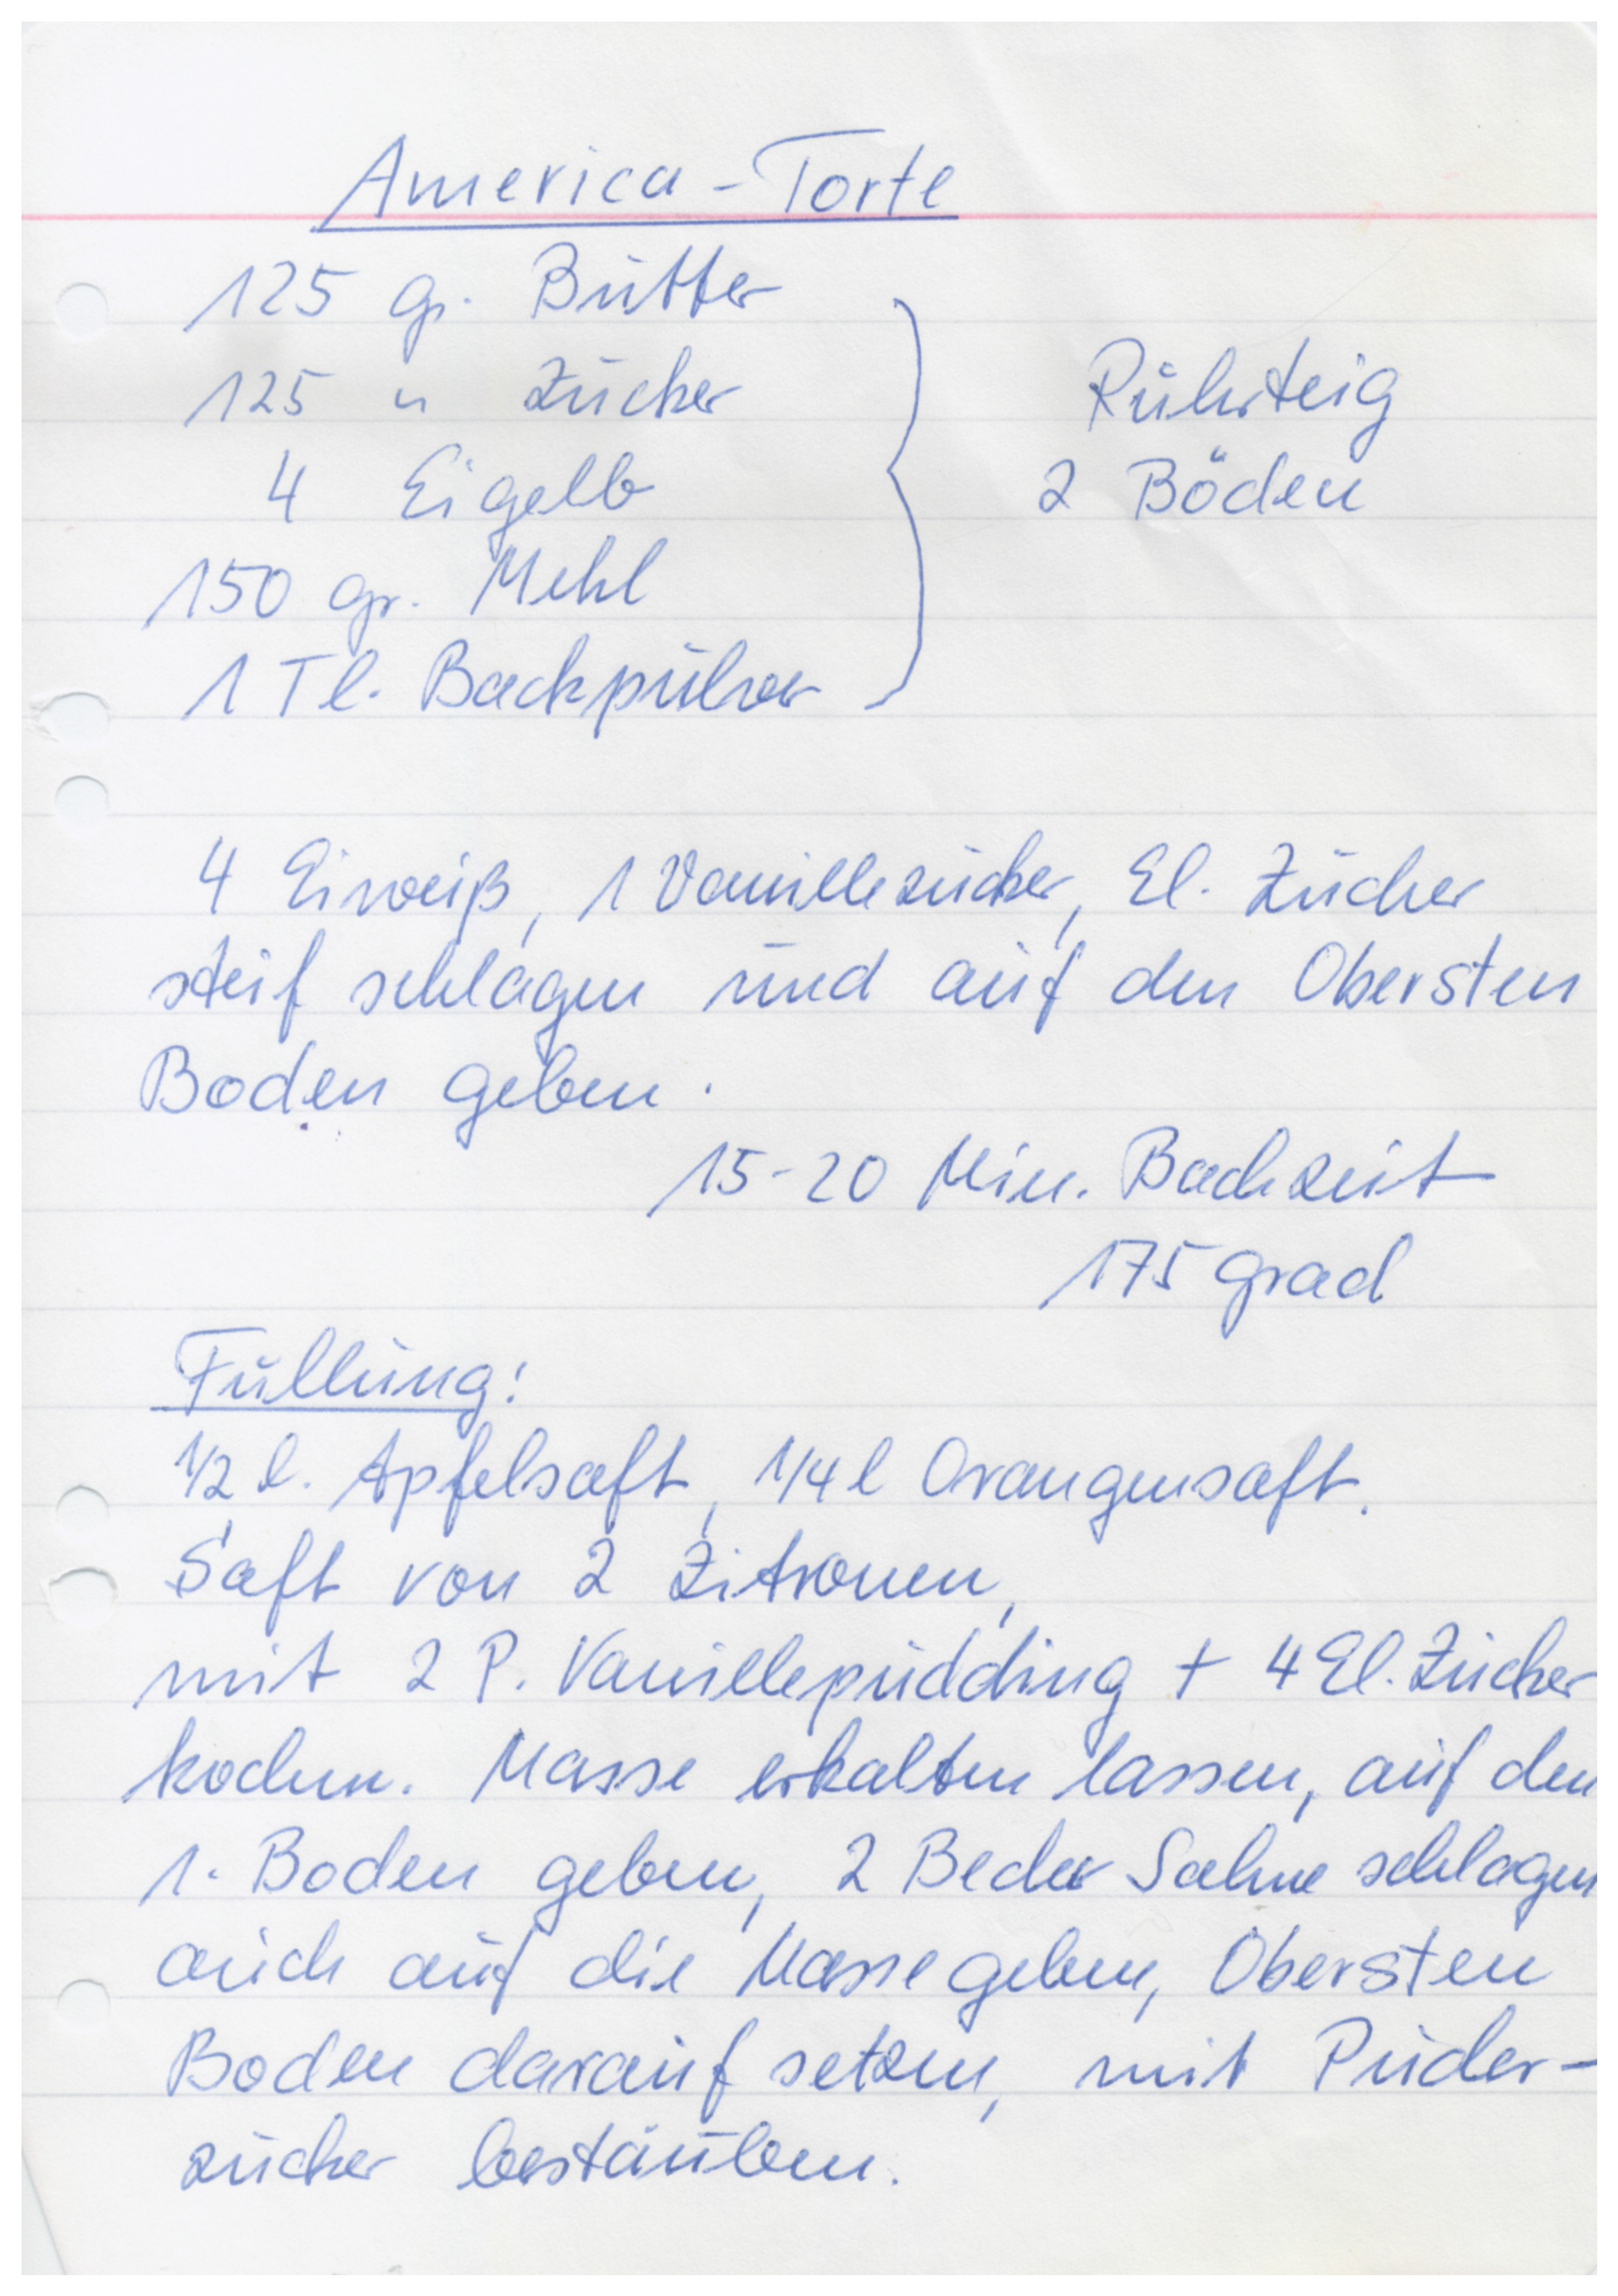 America-Torte
125 gr. Butter
125 " Zucker
4 Eigelb
150 gr. Mehl
1 Tl. Backpulver
Rührteig
2 Böden
4 Eiweiß, 1 Vanillezucker, El. Zucker
steif schlagen und auf den Obersten
Boden geben.
15-20 Min. Backzeit
175 grad
Füllung:
1/2 l. Apfelsaft, 1/4 l Orangensaft.
Saft von 2 Zitronen,
mit 2 P. Vanillepudding + 4 El. Zucker
kochen. Masse erkalten lassen, auf den
1. Boden geben, 2 Becher Sahne schlagen
auch auf die Masse geben, Obersten
Boden darauf setzen, mit Puder-
zucker bestäuben.